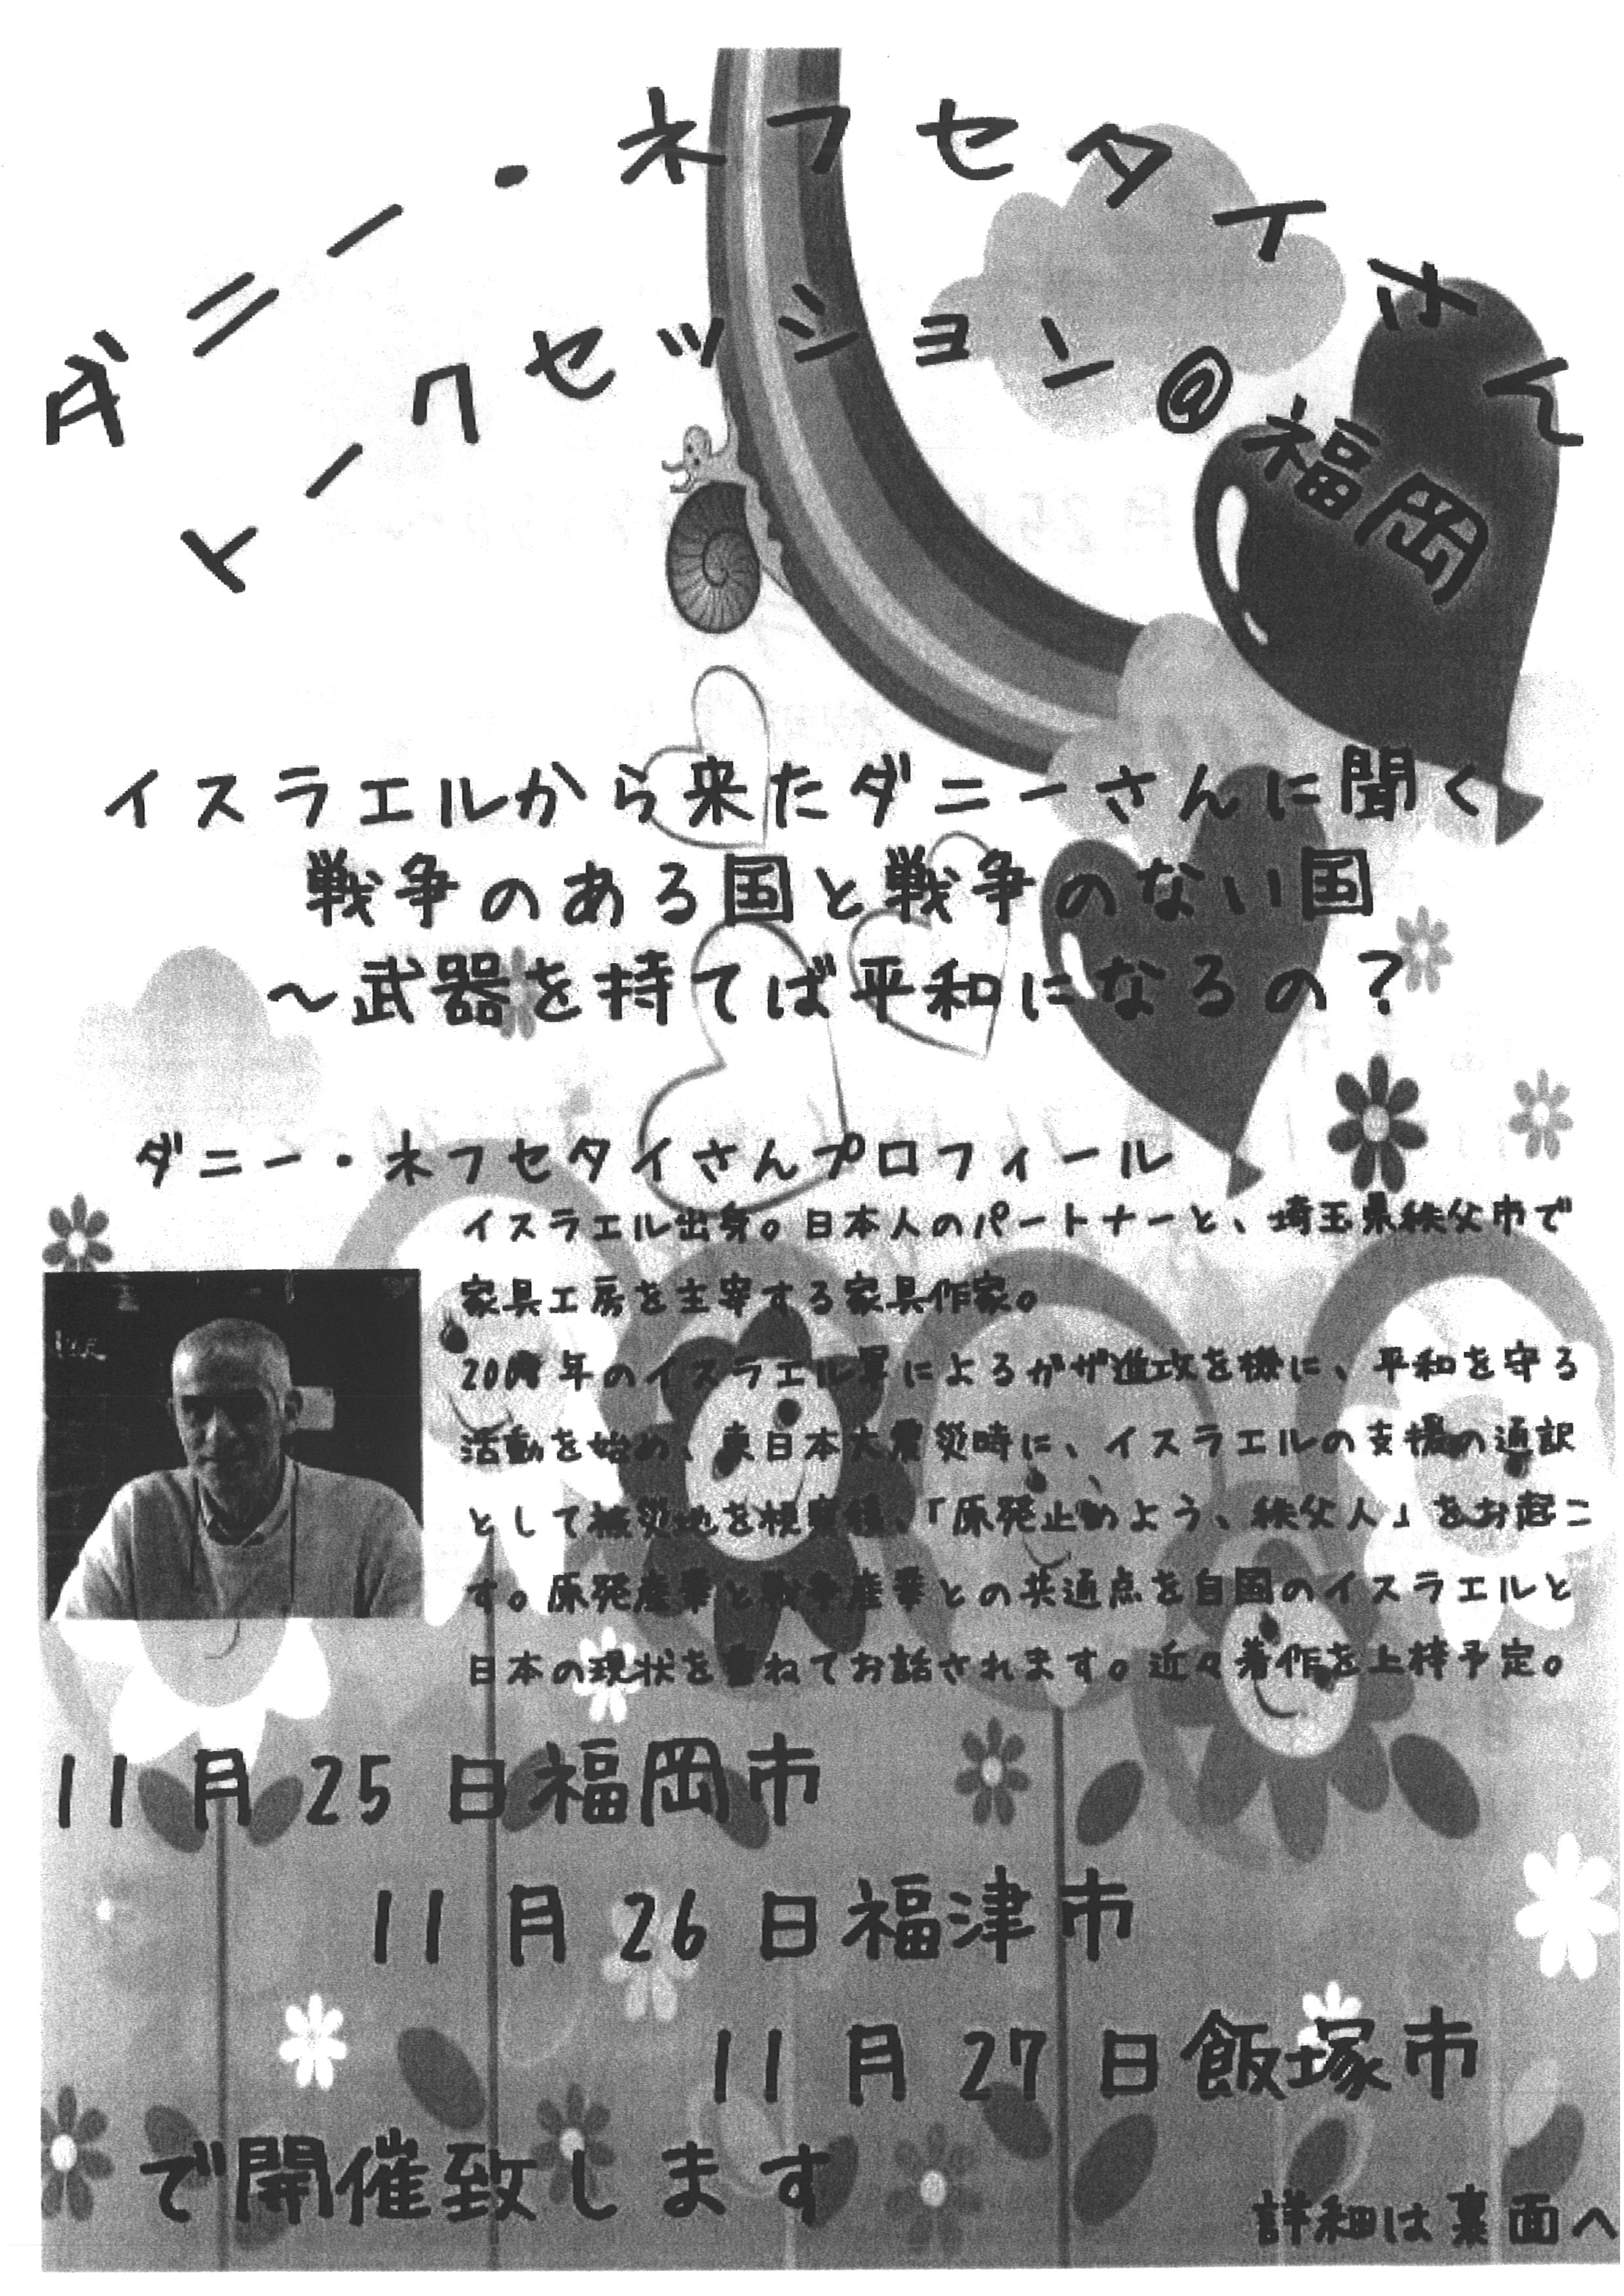 ダニー・ネフセタイさん
トークセッション@福岡
イスラエルから来たダニーさんに聞く
戦争のある国と戦争のない国
～武器を持てば平和になるの？
ダニー・ネフセタイさんプロフィール
イスラエル出身。日本人のパートナーと、埼玉県秩父市で
家具工房を主宰する家具作家。
年のイスラエル軍によるガザ進攻を機に、平和を守る
活動を始め、東日本大震災時に、イスラエルの支援の通訳
として被災地を視察後、「原発止めよう、秩父人」をお起こ
す。原発産業と戦争産業との共通点を自国のイスラエルと
日本の現状を重ねてお話されます。近々著作を上梓予定。
11月25日福岡市
11月26日福津市
11月27日飯塚市
で開催致します
詳細は裏面へ